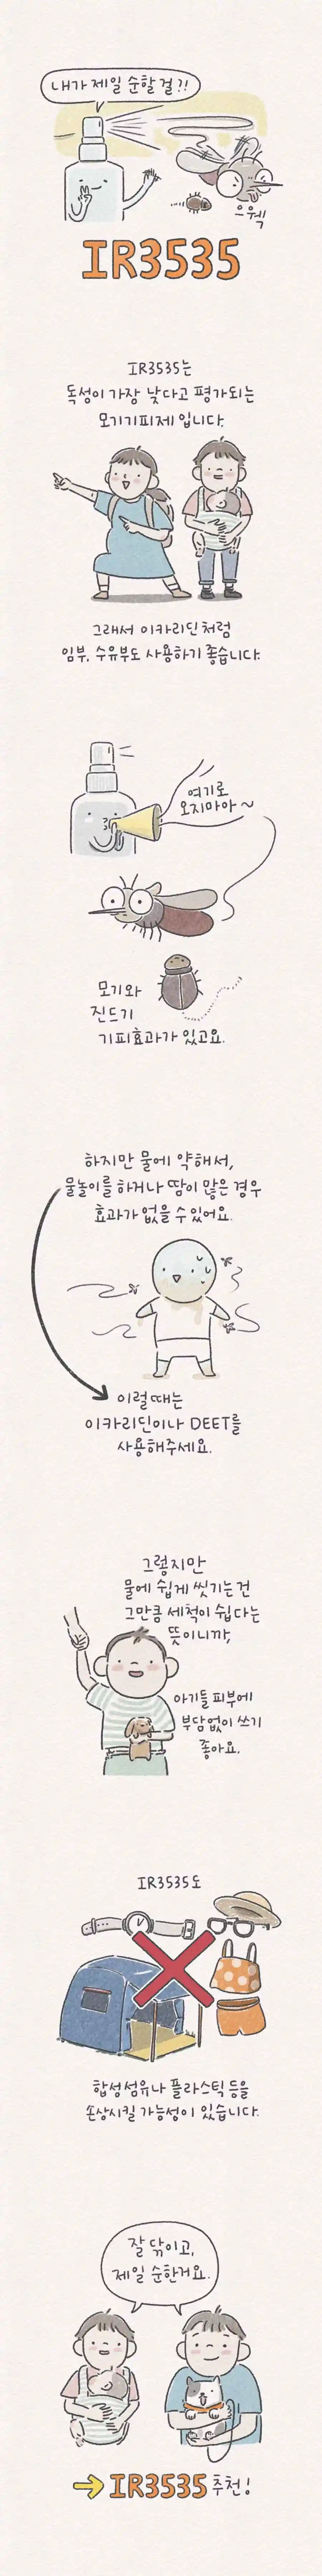 내가 제일 순할걸?!
으웩
IR3535
IR3535는
독성이 가장 낮다고 평가되는
모기기피제 입니다.
그래서 이카리딘처럼
임부, 수유부도 사용하기 좋습니다.
여기로
오지마아~
모기와
진드기
기피효과가 있고요.
하지만 물에 약해서,
물놀이를 하거나 땀이 많은 경우
효과가 없을 수 있어요.
이럴때는
이카리딘이나 DEET를
사용해주세요.
그렇지만
물에 쉽게 씻기는건
그만큼 세척이 쉽다는
뜻이니까,
아기들 피부에
부담없이 쓰기
좋아요.
IR3535도
합성섬유나 플라스틱 등을
손상시킬 가능성이 있습니다.
잘 닦이고,
제일 순한거요.
IR3535 추천!